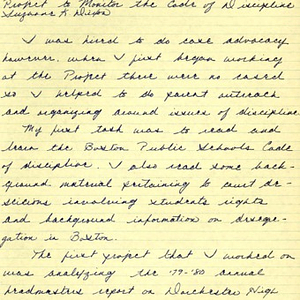 Project to Monitor the Code of Discipline
Suzanne F. Dixon
I was hired to do case advocacy
however, when I first began working
at the Project there were no cases
so I helped to do parent outreach
and organizing around issues of discipline
My first task was to read and
learn the Boston Public Schools Code
of discipline. I also read some back-
ground material pertaining to court de-
scicions involving students rights
and background information on desegre-
gation in Boston.
The first project that I worked on
was analyzing the '79-'80 annual
headmasters report on Dorchester High